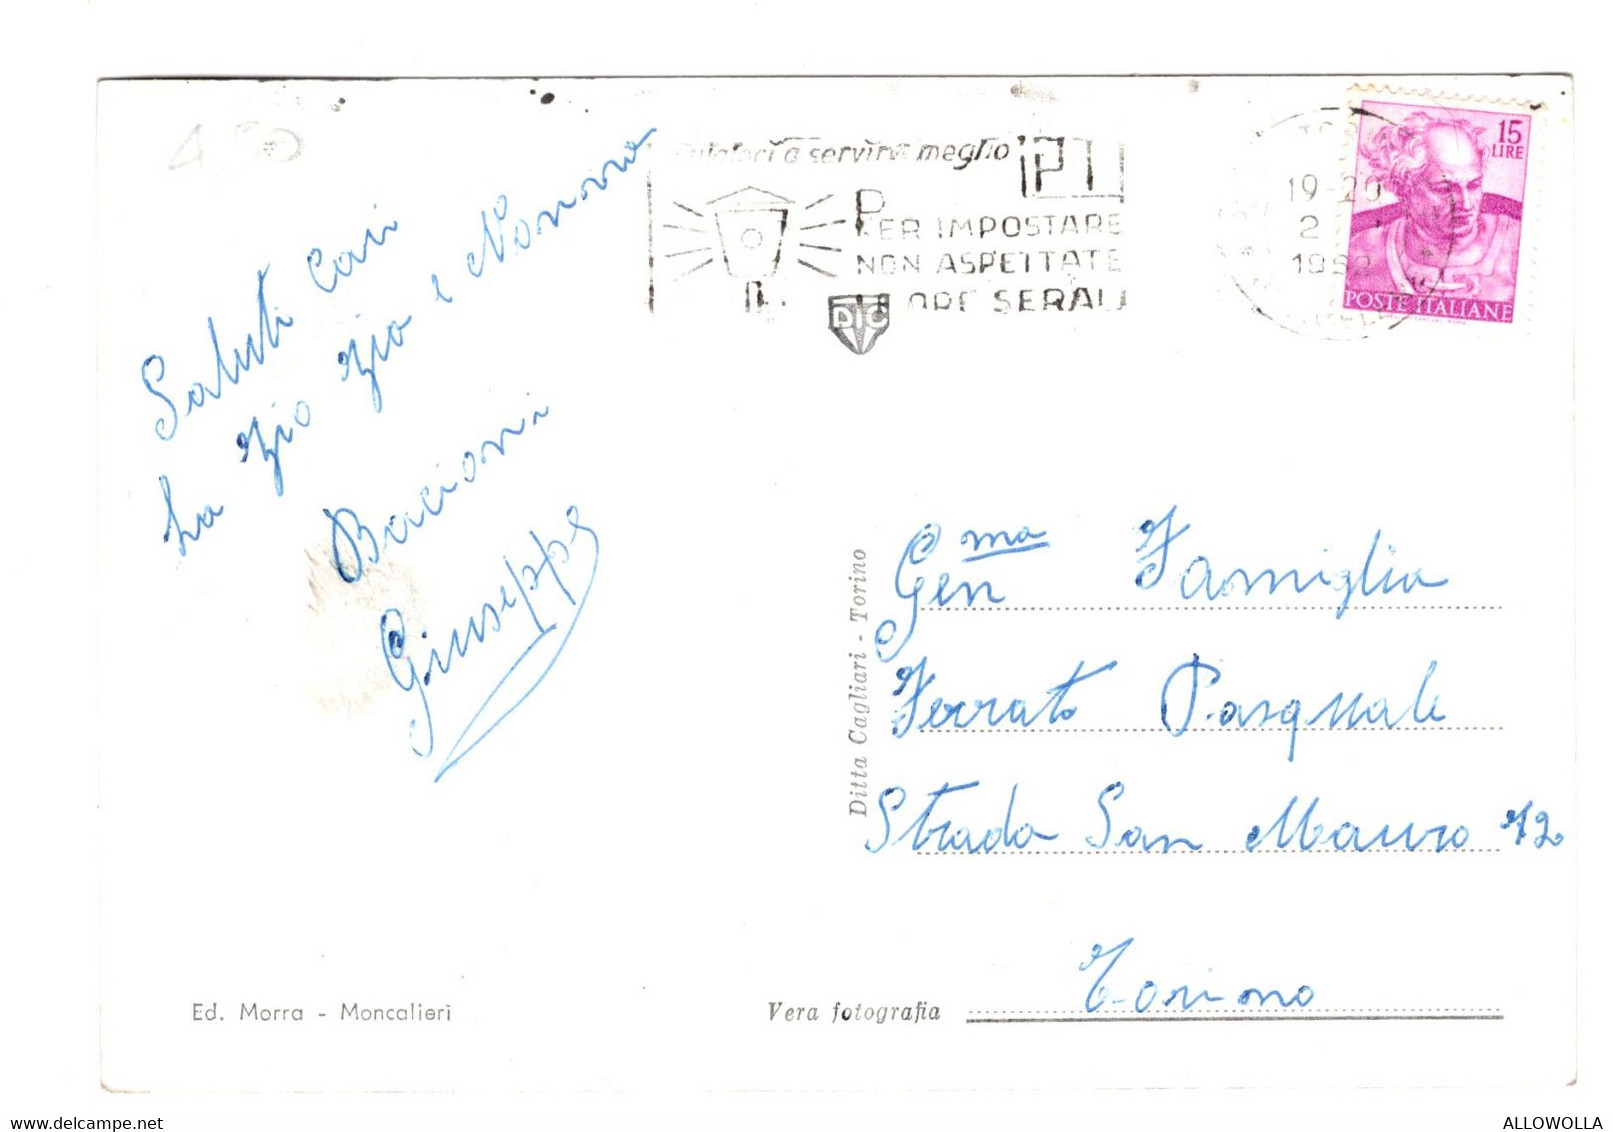 4,50
Saluti Cari
ha zio zia e Nonna
Bacioni
Giuseppe
Aiutateci a servirvi meglio PT
PER IMPOSTARE
NON ASPETTATE
LE ORE SERALI
19-20
2
DTC
15
LIRE
POSTE ITALIANE
Gen ma Famiglia
Ferrato Pasquale
Strada San Mauro 12
Torino
Ditta Cagliari - Torino
Ed. Morra - Moncalieri
Vera fotografia
ALLOWOLLA